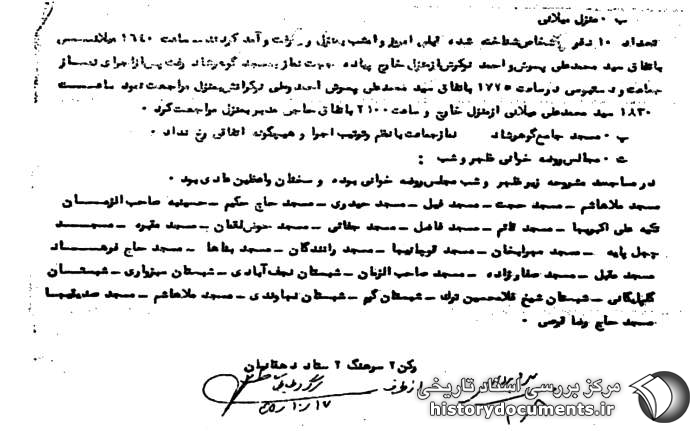 ب ـ منزل میلانی
تعداد ۱۰ نفر اشخاص شناخته شده قبلی امروز و امشب بمنزل رفت و آمد کردند ـ ساعت ۱۶۴۰ میلانی
باتفاق سید محمدعلی پسرش و احمد نوکرش از منزل خارج پیاده جهت نماز بمسجد گوهرشاد رفت پس از اجرای نماز
جماعت و دستبوسی در ساعت ۱۷۷۵ باتفاق سید محمدعلی پسرش احمد وعلی نوکرانش بمنزل مراجعت نمود ساعت
۱۸۳۰ سید محمدعلی میلانی از منزل خارج و ساعت ۲۱۰۰ باتفاق حاجی مدیر بمنزل مراجعت کرد ۰
پ ـ مسجد جامع گوهرشاد نماز جماعت با نظم و ترتیب اجرا و هیچگونه اتفاقی رخ نداد ۰
ت ـ مجالس روضه خوانی ظهر و شب :
در مساجد مشروحه زیر ظهر و شب مجلس روضه خوانی بوده و سخنان واعظین عادی بود ۰
مسجد ملاهاشم ـ مسجد حجت ـ مسجد فیل ـ مسجد حیدری ـ مسجد حاج حکیم ـ حسینیه صاحب الزمان
تکیه علی اکبریها ـ مسجد قائم ـ مسجد فاضل ـ مسجد حقانی ـ مسجد حوض لقمان ـ مسجد مقبره ـ مسجد
چهل پایه ـ مسجد مهرابخان ـ مسجد قوچانیها ـ مسجد رانندگان ـ مسجد بناها ـ مسجد حاج فرهاد
مسجد مقبل ـ مسجد صفارزاده ـ مسجد صاحب الزمان ـ شبستان نجف آبادی ـ شبستان سبزواری ـ شبستان
گلپایگانی ـ شبستان شیخ غلامحسین ترک ـ شبستان گرم ـ شبستان نهاوندی ـ مسجد ملاهاشم ـ مسجد صدیقیها
مسجد حاج رضا قرصی ۰
رکن ۲ سرهنگ ۲ ستاد دهقانیان
از طرف
مرکز بررسی اسناد تاریخی
historydocuments.ir